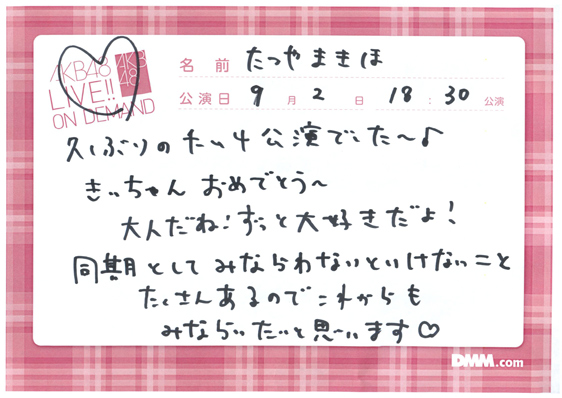 AKB48
LIVE!!
ON DEMAND
AKB48
名前 たつやまきほ
公演日 9月2日 18:30公演
久しぶりのたい4公演でした〜♪
きぃちゃん おめでとう〜
大人だね!ずっと大好きだよ!
同期として みならわないといけないこと
たくさんあるので これからも
みならいたいと思います♡
DMM.com